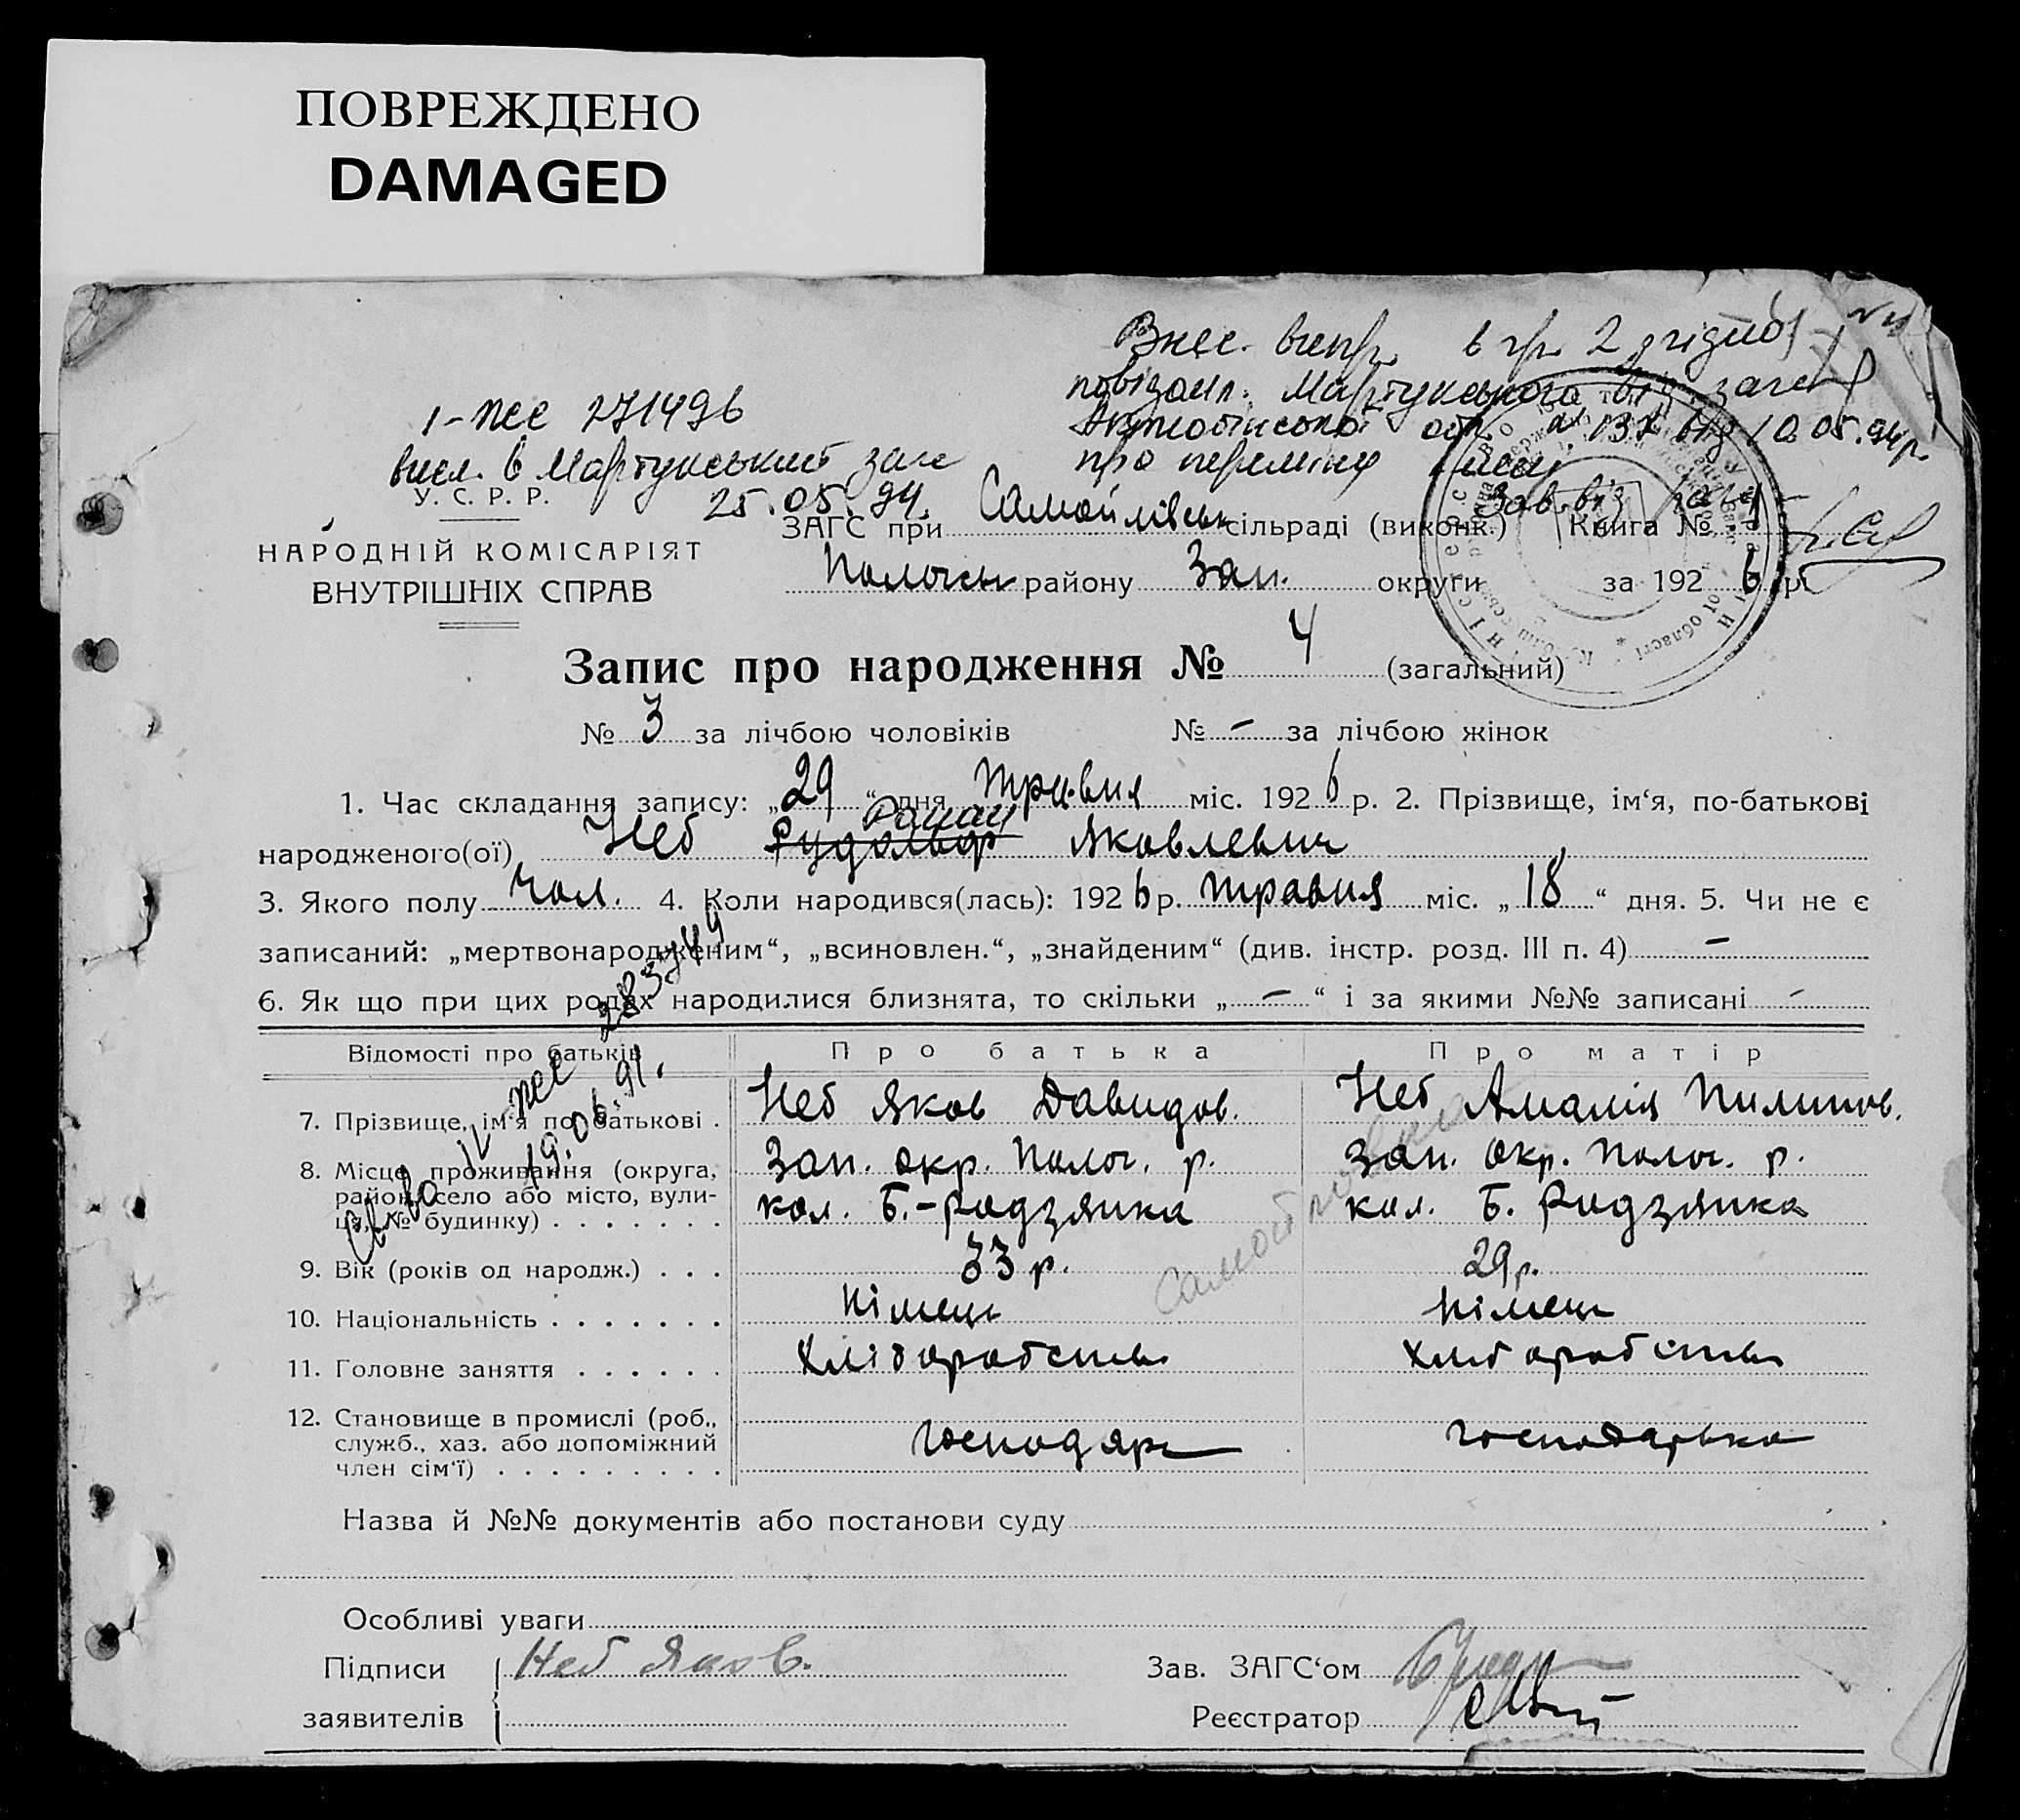 ПОВРЕЖДЕНО
DAMAGED
Внес. випр. в гр. 2 згідно
повідомл. Мартукського від. загс
Актюбінської обл. № 137 від 10.05.94р.
про переміну імені
Зав. від.
І-ПСС 271496
висл. в Мартукський загс
25.05.94.
У. С. Р. Р.
НАРОДНІЙ КОМІСАРІЯТ
ВНУТРІШНІХ СПРАВ
ЗАГС при Самойлівськ сільраді (виконк.) Книга №
Пологськ району Зап. округи за 192 6 р.
Запис про народження № 4 (загальний)
№ 3 за лічбою чоловіків № - за лічбою жінок
1. Час складання запису: „ 29 “ дня травня міс. 192 6 р. 2. Прізвище, ім‘я, по-батькові
Роман
народженого(ої) Неб Рудольф Яковлевич
3. Якого полу чол. 4. Коли народився(лась): 192 6 р. травня міс. „ 18 “ дня. 5. Чи не є
записаний: „мертвонародженим“, „всиновлен.“, „знайденим“ (див. інстр. розд. III п. 4) -
6. Як що при цих родах народилися близнята, то скільки „ - “ і за якими №№ записані -
Відомості про батьків Про батька Про матір
7. Прізвище, ім‘я по батькові . Неб Яков Давидов. Неб Амалія Пилипов.
8. Місце проживання (округа, Зап. окр. Полог. р. Зап. окр. Полог. р.
район, село або місто, вули-
ця, № будинку) . . . . . . . кол. Б.-Родзянка кол. Б. Родзянка
9. Вік (років од народж.) . . . 33 р. 29 р.
10. Національність . . . . . . . німець німець
11. Головне заняття . . . . . . Хліборобств Хліборобств
12. Становище в промислі (роб.,
служб., хаз. або допоміжний господарь господарька
член сім‘ї) . . . . . . . . .
19.06.91.
Назва й №№ документів або постанови суду
Особливі уваги
Підписи Неб Яков. Зав. ЗАГС‘ом
заявителів Реєстратор